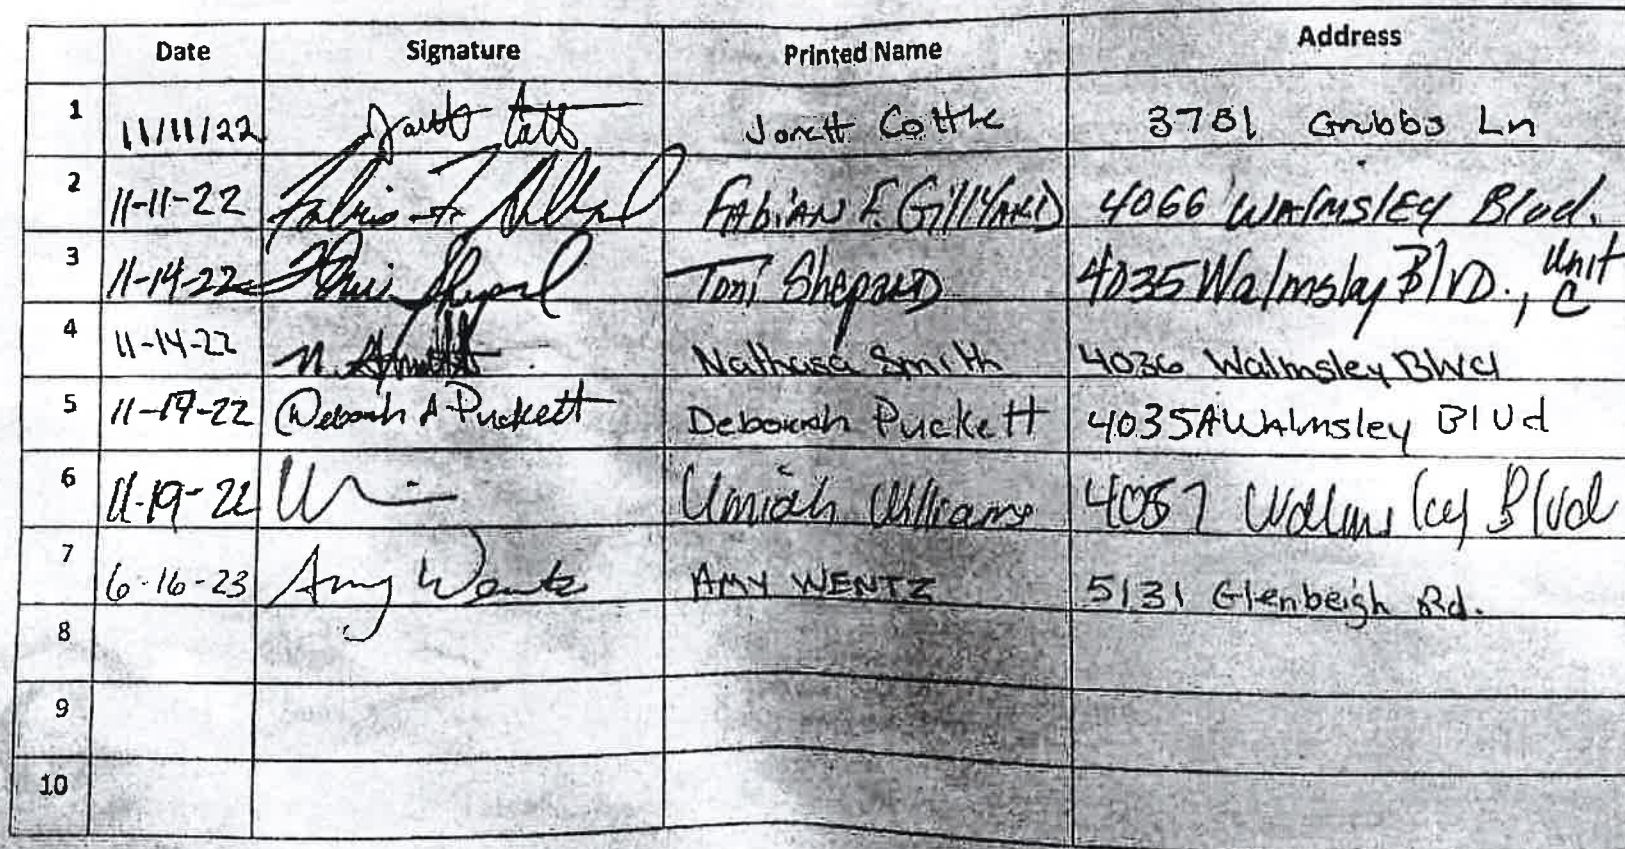 Date Signature Printed Name Address
1 11/11/22 Jarett Cottle 3781 Grubbs Ln
2 11-11-22 Fabian F. Gillyard FAbiAN F. GillYARD 4066 WAlmslEy Blvd.
3 11-14-22 Toni Shepard Toni Shepard 4035 Walmsley BlvD., Unit C
4 11-14-22 N. Smith Smith 4036 Walmsley BLVd
5 11-17-22 Deborah A Puckett Deborah Puckett 4035A Walmsley Blvd
6 11-19-22 Umiah Williams 4057 Walmsley Blvd
7 6-16-23 Amy Wentz AMY WENTZ 5131 Glenbeigh Rd.
8
9
10